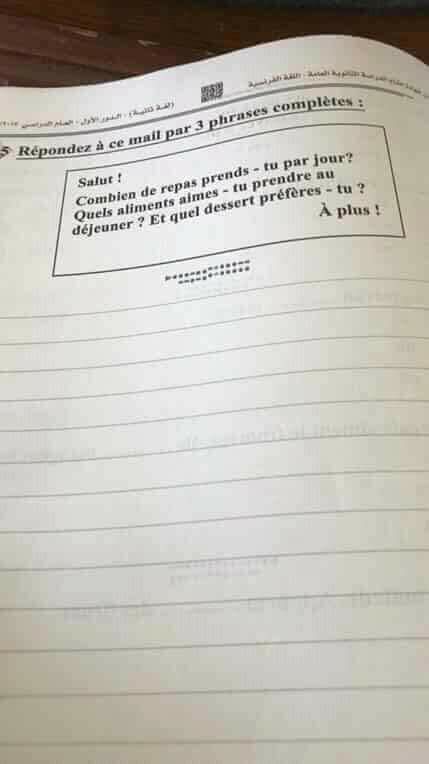 (لغة ثانية) - الدور الأول - العام الدراسي
الثانوية العامة - اللغة الفرنسية
5 Répondez à ce mail par 3 phrases complètes :
Salut !
Combien de repas prends - tu par jour?
Quels aliments aimes - tu prendre au
déjeuner ? Et quel dessert préfères - tu ?
À plus !